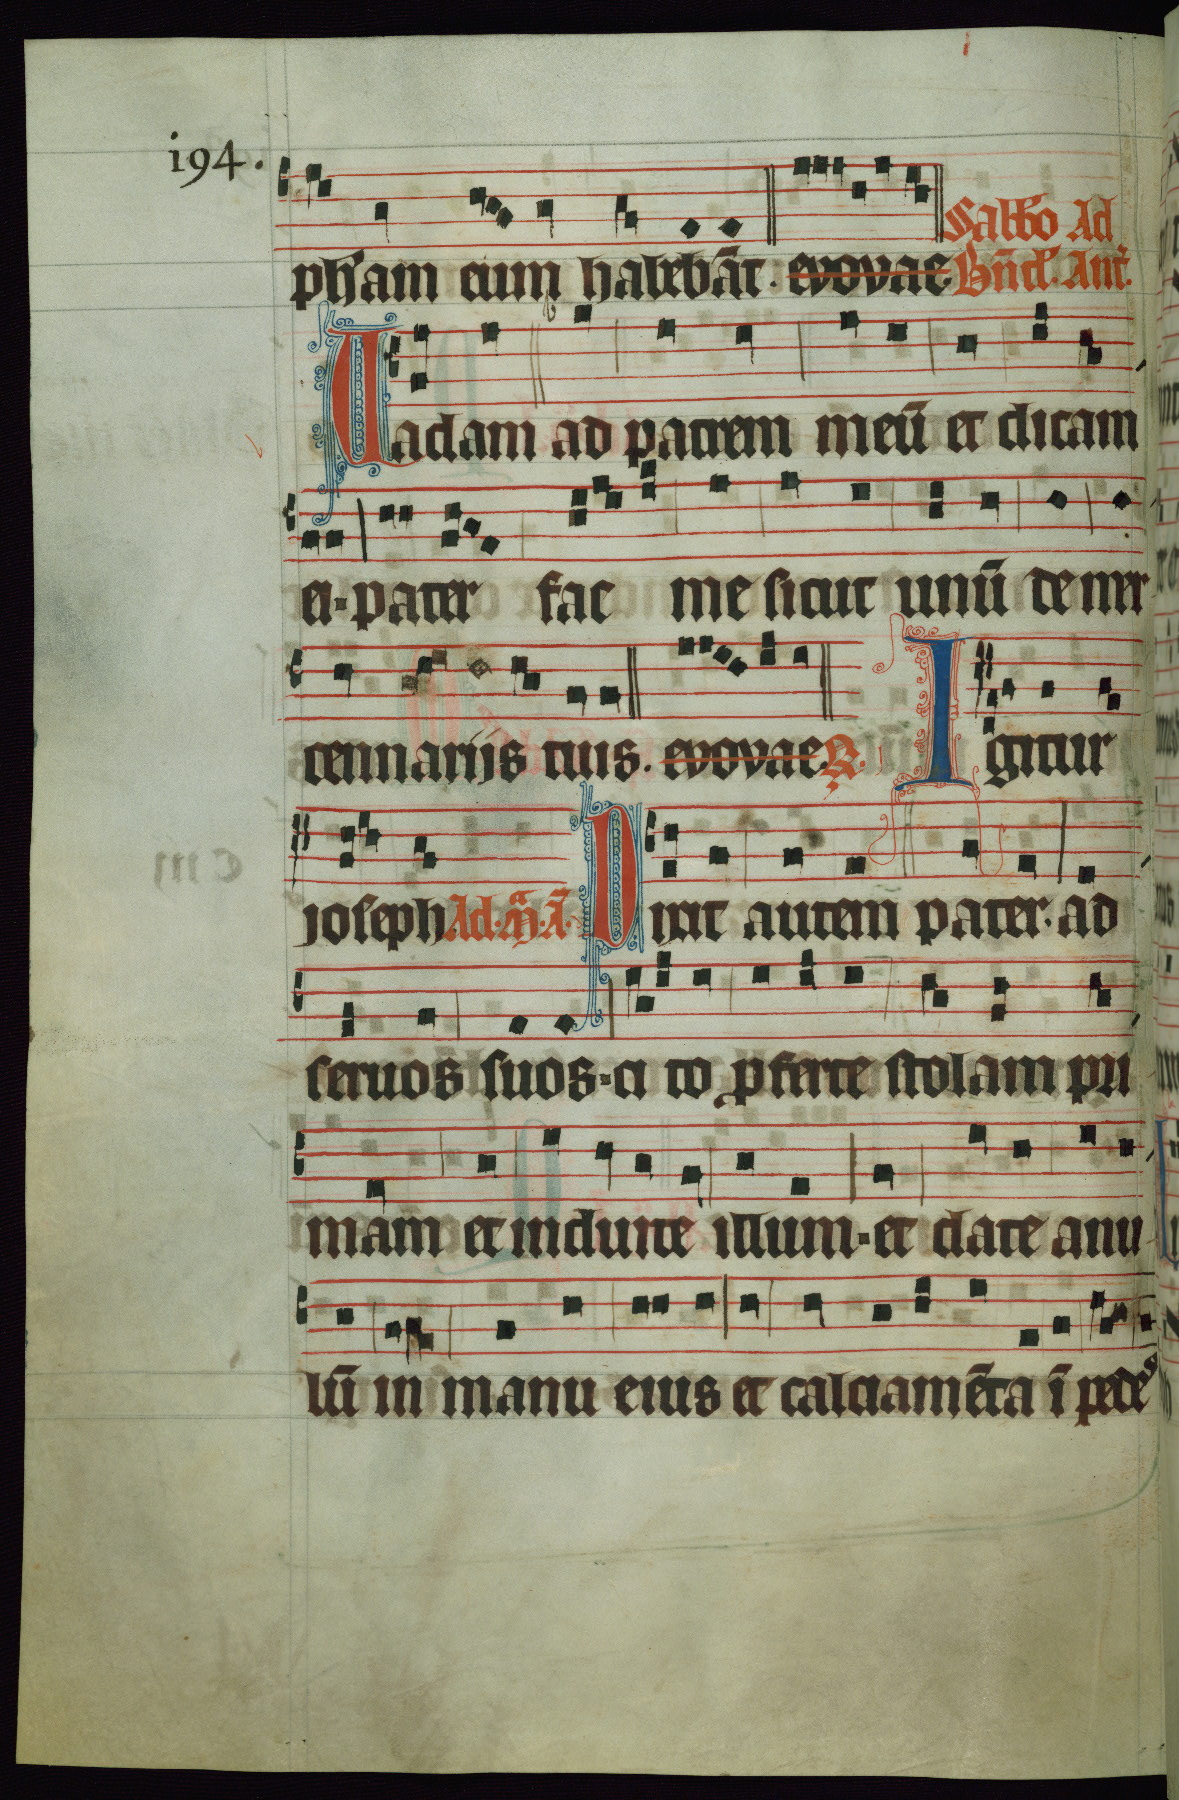 194.
ph̄am eum habeb̄at. evovae Sabbo Ad
Bn̄d. Ant.
Vadam ad patrem meū et dicam
ei-pater fac me sicut unū de mer
cennarijs tuis. evovae R. Igitur
joseph Ad. M̄. A. Dixit autem pater. ad
seruos suos-ci to p̱ferte stolam pri
mam et induite illum-et date anu
lū in manu eius et calciamēta ī pede